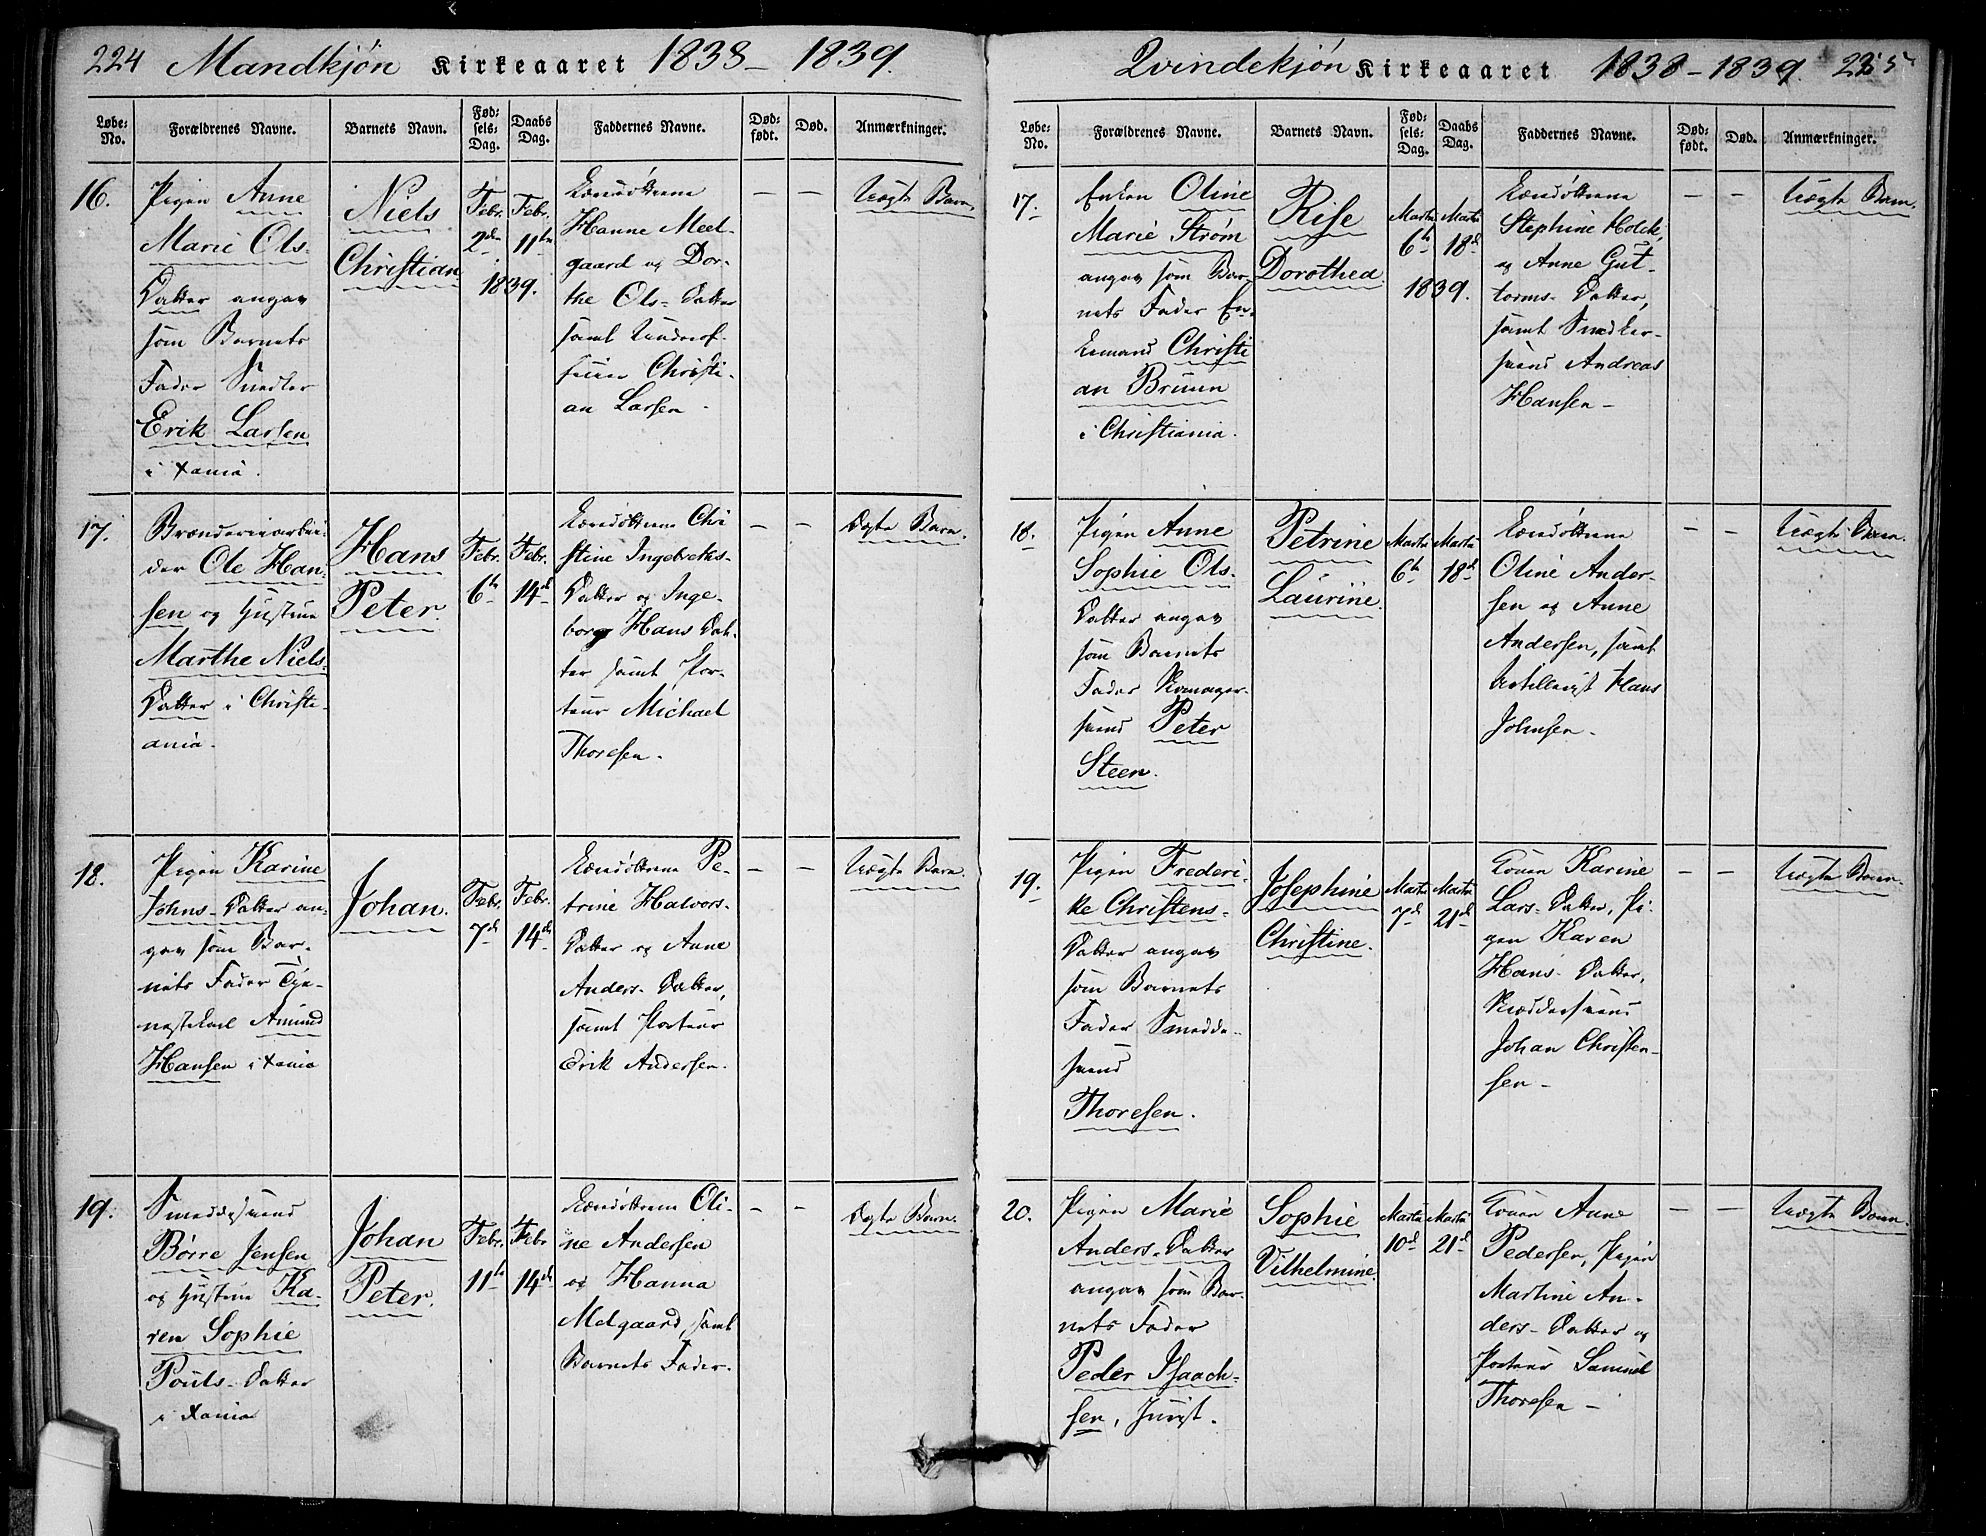 224 Mandkjön Kirkeaaret 1838 – 1839.
Løbe: No.
Forældrenes Navne.
Barnets Navn.
Fød: sels: Dag.
Daabs Dag.
Faddernes Navne.
Død: født.
Død.
Anmærkninger.
16.
Pigen Anne
Marie Ols-
Datter angav
som Barnets
Fader Snedker
Erik Larsen
i Xania.
Niels
Christian
Febr. 2den
Febr. 11te
1839.
Hanne Meel-
gaard og Dor-
the Ols-Datter
samt Underof-
ficier Christi-
an Larsen -
— —
Uægte Barn.
17.
Brænderiearbei-
der Ole Han-
sen og Hustrue
Marthe Niels-
Datter i Christi-
ania.
Hans
Peter.
Febr. 6te
Febr. 14de
Chri
stine Ingebreths-
Datter og Inge-
borg Hans Dat-
ter samt Por-
teur Michael
Thoresen.
— —
Ægte Barn.
18.
Pigen Karine
Johns-Datter an-
gav som Bar-
nets Fader Tje-
nestekarl Amund
Hansen i Xania
Johan.
Febr. 7de
Febr. 14de
Pe-
trine Halvors-
Datter og Anne
Anders-Datter,
samt Porteur
Erik Andersen.
— —
Uægte Barn.
19.
Smeddesvend
Börre Jensen
og Hustrue Ka-
ren Sophie
Pouls-Datter
i Xania
Johan
Peter.
Febr. 11te
Febr 14de
Oli-
ne Andersen
og Hanna
Melgaard, samt
Barnets Fader.
— —
Ægte Barn.
Qvindekjön Kirkeaaret 1838 – 1839. 225
Løbe: No.
Forældrenes Navne.
Barnets Navn.
Fød: sels: Dag.
Daabs Dag.
Faddernes Navne.
Død: født.
Død.
Anmærkninger.
17.
Enken Oline
Marie Ström
angav som Bar-
nets Fader En-
kemand Christi
an Bruun
i Christiania.
Rise
Dorothea
Marts 6te
Marts 18de
1839.
Stephine Holck,
og Anne Gut-
torms-Datter,
samt Snedker-
svend Andreas
Hansen -
— —
Uægte Barn.
18.
Pigen Anne
Sophie Ols-
Datter angav
som Barnets
Fader
svend Peter
Steen.
Petrine
Laurine.
Marts 6te
Marts 18de
Oline Ander-
sen og Anne
Andersen, samt
Artillerist Hans
Johnsen -
— —
Uægte Barn.
19.
Pigen Frederi-
ke Christens-
Datter angav
som Barnets
Fader Smedde-
svend
Thoresen.
Josephine
Christine.
Marts 7de
Marts 21de
Konen Karine
Lars-Datter, Pi-
gen Karen
Hans-Datter,
Skreddersvend
Johan Christen-
sen -
— —
Uægte Barn
20.
Pigen Marie
Anders-Datter
angav som Bar-
nets Fader
Peder Isaach-
sen, Jurist.
Sophie
Vilhelmine.
Marts 10de
Marts 21de
Konen Anne
Pedersen, Pigen
Martine An-
ders-Datter og
Porteur Samuel
Thoresen -
— —
Uægte Barn.